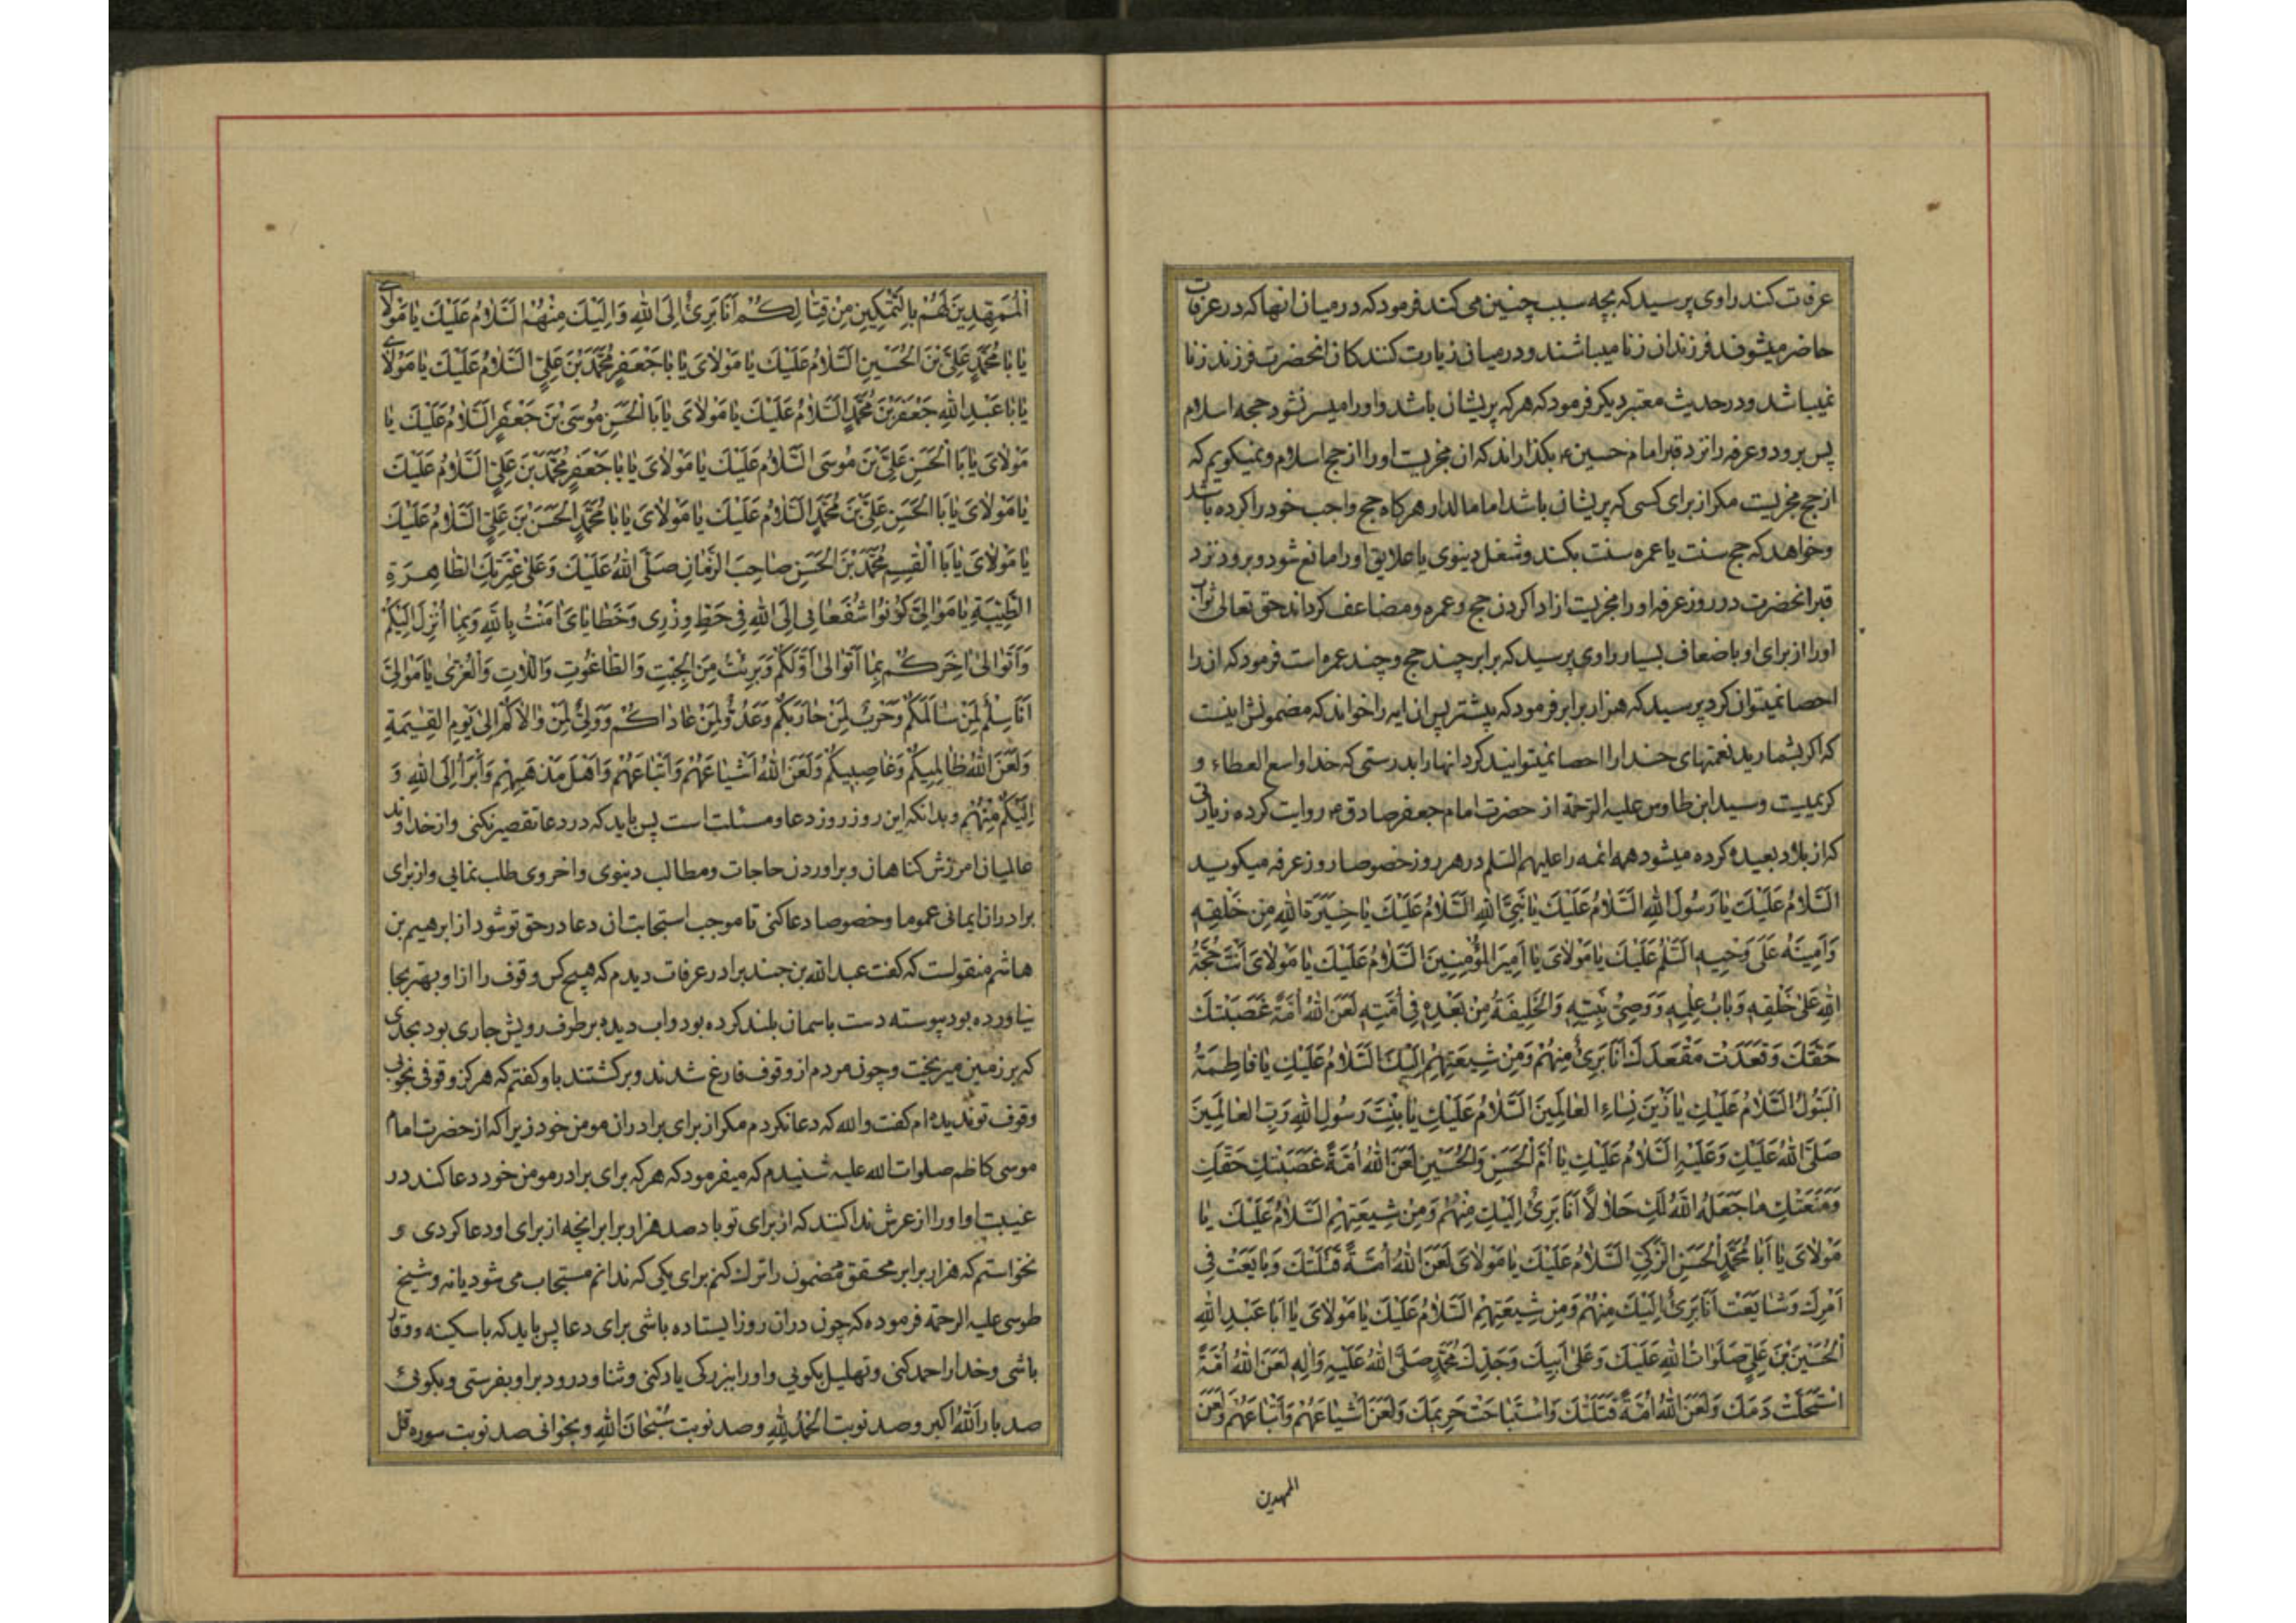 عرفات کند راوی پرسید که بچه سبب چنین می کند فرمود که در میان انها که در عرفات
حاضر میشوند فرزندان زنا میباشند و در میان زیارت کنندکان انحضرت فرزند زنا
نمیباشد و در حدیث معتبر دیکر فرمود که هر که پریشان باشد و او را میسر نشود حجه اسلام
پس برود و عرفه را نزد قبر امام حسین ع بکذراند که ان مجزیست او را از حج اسلام و نمیکویم که
از حج مجزیست مکر از برای کسی که پریشان باشد اما مالدار هرکاه حج واجب خود را کرده باشد
و خواهد که حج سنت یا عمره سنت بکند و شغل دینوی یا علایق او را مانع شود و برود نزد
قبر انحضرت در روز عرفه او را مجزیست از ادا کردن حج و عمره و مضاعف کرداند حق تعالی ثواب
او را از برای او باضعاف بسیار راوی پرسید که برابر چند حج و چند عمره است فرمود که ان را
احصا نمیتوان کرد پرسید که هزار برابر فرمود که بیشتر پس ان ایه را خواند که مضمونش اینست
که اکر بشمارید نعمتهای خدا را احصا نمیتوانید کرد انها را بدرستی که خدا واسع العطاء و
کریمیست و سید ابن طاوس علیه الرحمة از حضرت امام جعفر صادق ع روایت کرده زیارتی
که از بلاد بعیده کرده میشود همه ائمه را علیهم السلم در هر روز خصوصا روز عرفه میکوید
اَلسَّلامُ عَلَیْكَ یا رَسُولَ اللهِ السَّلامُ عَلَیْكَ یا نَبِیَّ اللهِ السَّلامُ عَلَیْكَ یا خِیَرَةَ اللهِ مِنْ خَلْقِهِ
وَاَمِینَهُ عَلی وَحْیِهِ السَّلمُ عَلَیْكَ یا مَوْلایَ یا اَمِیرَ الْمُؤْمِنِینَ السَّلامُ عَلَیْكَ یا مَوْلایَ اَنْتَ حُجَّةُ
اللهِ عَلی خَلْقِهِ وَبابُ عِلْمِهِ وَوَصِیُّ نَبِیِّهِ وَالْخَلِیفَةُ مِنْ بَعْدِهِ فِی اُمَّتِهِ لَعَنَ اللهُ اُمَّةً غَصَبَتْكَ
حَقَّكَ وَقَعَدَتْ مَقْعَدَكَ اَنَا بَرِیءٌ مِنْهُمْ وَمِنْ شِیعَتِهِمْ اِلَیْكَ السَّلامُ عَلَیْكِ یا فاطِمَةُ
الْبَتُولُ السَّلامُ عَلَیْكِ یا زَیْنَ نِساءِ الْعالَمِینَ السَّلامُ عَلَیْكِ یا بِنْتَ رَسُولِ اللهِ رَبِّ الْعالَمِینَ
صَلَّی اللهُ عَلَیْكِ وَعَلَیْهِ السَّلامُ عَلَیْكِ یا اُمَّ الْحَسَنِ وَالْحُسَیْنِ لَعَنَ اللهُ اُمَّةً غَصَبَتْكِ حَقَّكِ
وَمَنَعَتْكِ ما جَعَلَهُ اللهُ لَكِ حَلالاً اَنَا بَرِیءٌ اِلَیْكِ مِنْهُمْ وَمِنْ شِیعَتِهِمْ السَّلامُ عَلَیْكَ یا
مَوْلایَ یا اَبا مُحَمَّدٍ الْحَسَنَ الزَّکِیَّ السَّلامُ عَلَیْكَ یا مَوْلایَ لَعَنَ اللهُ اُمَّةً قَتَلَتْكَ وَبایَعَتْ فِی
اَمْرِكَ وَشایَعَتْ اَنَا بَرِیءٌ اِلَیْكَ مِنْهُمْ وَمِنْ شِیعَتِهِمْ السَّلامُ عَلَیْكَ یا مَوْلایَ یا اَبا عَبْدِ اللهِ
الْحُسَیْنَ بْنَ عَلِیٍّ صَلَواتُ اللهِ عَلَیْكَ وَعَلی اَبِیكَ وَجَدِّكَ مُحَمَّدٍ صَلَّی اللهُ عَلَیْهِ وَالِهِ لَعَنَ اللهُ اُمَّةً
اسْتَحَلَّتْ دَمَكَ وَلَعَنَ اللهُ اُمَّةً قَتَلَتْكَ وَاسْتَباحَتْ حَرِیمَكَ وَلَعَنَ اَشْیاعَهُمْ وَاَتْباعَهُمْ وَلَعَنَ
الممهدین
الْمُمَهِّدِینَ لَهُمْ بِالتَّمْکِینِ مِنْ قِتالِکُمْ اَنَا بَرِیءٌ اِلَی اللهِ وَاِلَیْكَ مِنْهُمْ السَّلامُ عَلَیْكَ یا مَوْلایَ
یا بَا مُحَمَّدٍ عَلِیَّ بْنَ الْحُسَیْنِ السَّلامُ عَلَیْكَ یا مَوْلایَ یا بَا جَعْفَرٍ مُحَمَّدَ بْنَ عَلِیٍّ السَّلامُ عَلَیْكَ یا مَوْلایَ
یا بَا عَبْدِ اللهِ جَعْفَرَ بْنَ مُحَمَّدٍ السَّلامُ عَلَیْكَ یا مَوْلایَ یا بَا الْحَسَنِ مُوسَی بْنَ جَعْفَرٍ السَّلامُ عَلَیْكَ یا
مَوْلایَ یا بَا الْحَسَنِ عَلِیَّ بْنَ مُوسَی السَّلامُ عَلَیْكَ یا مَوْلایَ یا بَا جَعْفَرٍ مُحَمَّدَ بْنَ عَلِیٍّ السَّلامُ عَلَیْكَ
یا مَوْلایَ یا بَا الْحَسَنِ عَلِیَّ بْنَ مُحَمَّدٍ السَّلامُ عَلَیْكَ یا مَوْلایَ یا بَا مُحَمَّدٍ الْحَسَنَ بْنَ عَلِیٍّ السَّلامُ عَلَیْكَ
یا مَوْلایَ یا بَا الْقسِمِ مُحَمَّدَ بْنَ الْحَسَنِ صاحِبَ الزَّمانِ صَلَّی اللهُ عَلَیْكَ وَعَلی عِتْرَتِكَ الطّاهِرَةِ
الطَّیِّبَةِ یا مَوالِیَّ کُونُوا شُفَعائِی اِلَی اللهِ فِی حَطِّ وِزْرِی وَخَطایایَ امَنْتُ بِاللهِ وَبِما اُنْزِلَ اِلَیْکُمْ
وَاَتَوالی اخِرَکُمْ بِما اَتَوالی اَوَّلَکُمْ وَبَرِئْتُ مِنَ الْجِبْتِ وَالطّاغُوتِ وَاللّاتِ وَالْعُزّی یا مَوالِیَّ
اَنَا سِلْمٌ لِمَنْ سالَمَکُمْ وَحَرْبٌ لِمَنْ حارَبَکُمْ وَعَدُوٌّ لِمَنْ عاداکُمْ وَوَلِیٌّ لِمَنْ والاکُمْ اِلی یَوْمِ الْقِیمَةِ
وَلَعَنَ اللهُ ظالِمِیکُمْ وَغاصِبِیکُمْ وَلَعَنَ اللهُ اَشْیاعَهُمْ وَاَتْباعَهُمْ وَاَهْلَ مَذْهَبِهِمْ وَاَبْرَأُ اِلَی اللهِ وَ
اِلَیْکُمْ مِنْهُمْ و بدانکه این روز روز دعا و مسئلت است پس باید که در دعا تقصیر نکنی و از خداوند
عالمیان امرزش کناهان و براوردن حاجات و مطالب دینوی و اخروی طلب نمایی و از برای
برادران ایمانی عموما و خصوصا دعا کنی تا موجب استجابت ان دعا در حق تو شود از ابرهیم بن
هاشم منقولست که کفت عبد الله بن جندب را در عرفات دیدم که هیچ کس وقوف را از او بهتر بجا
نیاورده بود پیوسته دست باسمان بلند کرده بود و اب دیده بر طرف رویش جاری بود بحدی
که بر زمین میریخت و چون مردم از وقوف فارغ شدند و برکشتند باو کفتم که هرکز وقوفی بخوبی
وقوف تو ندیده ام کفت والله که دعا نکردم مکر از برای برادران مومن خود زیرا که از حضرت امام
موسی کاظم صلوات الله علیه شنیدم که میفرمود که هر که برای برادر مومن خود دعا کند در
غیبت او او را از عرش ندا کنند که از برای تو باد صد هزار برابر انچه از برای او دعا کردی و
نخواستم که هزار برابر محقق مضمون را ترك کنم برای یکی که ندانم مستجاب می شود یا نه و شیخ
طوسی علیه الرحمة فرموده که چون در ان روز ایستاده باشی برای دعا پس باید که با سکینه و وقار
باشی و خدا را حمد کنی و تهلیل بکویی و او را ببزرکی یاد کنی و ثنا و درود بر او بفرستی و بکویی
صد بار اَللهُ اکبر و صد نوبت اَلْحَمْدُ لِلهِ و صد نوبت سُبْحانَ اللهِ و بخوانی صد نوبت سوره قل